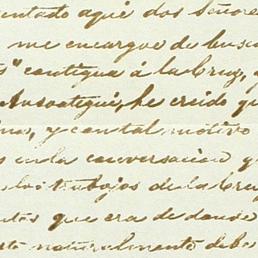 entado aquí dos señores
me encargue de busca
" contigua á la Cruz,
Ansoategui, he creido q
y con tal motivo
en la conversacion y
los trabajos de la Cruz
que era de donde
naturalmente debe